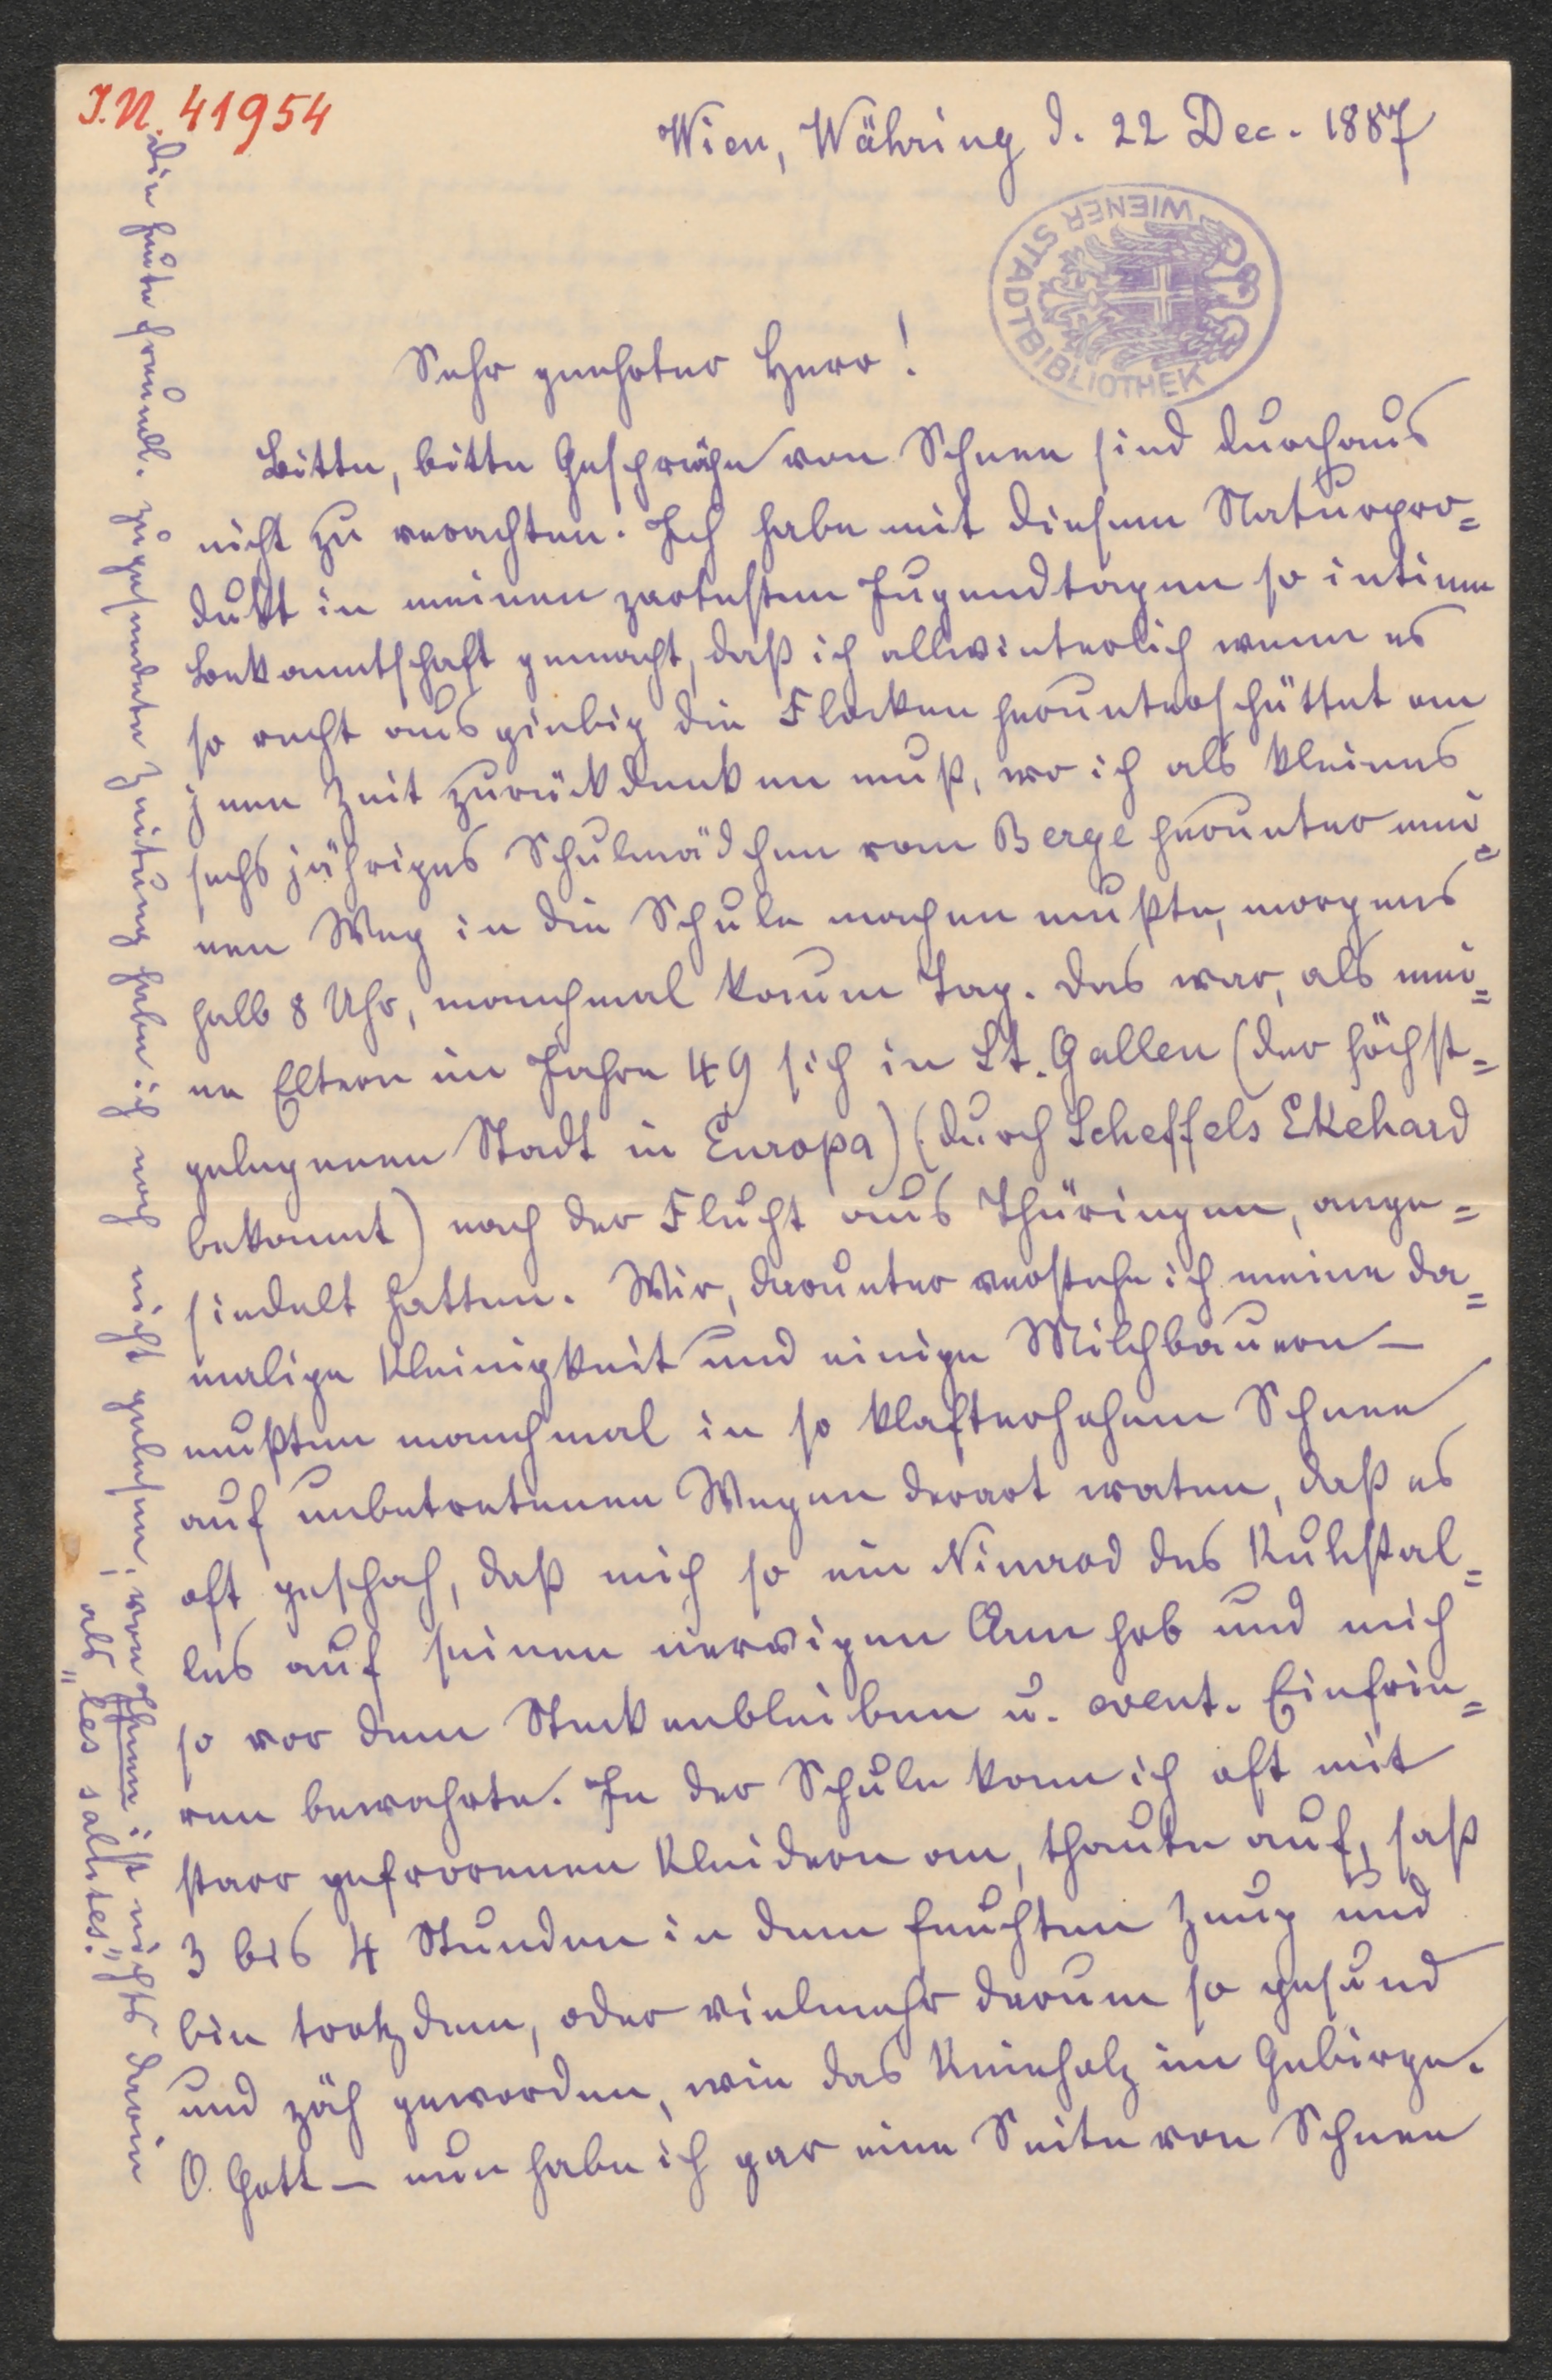 I.N. 41954
Wien, Währing d. 22 Dec. 1887
WIENER STADTBIBLIOTHEK
Sehr geehrter Herr!
Bitte, bitte Gespräche von Schnee sind durchaus
nicht zu verachten. Ich habe mit diesem Naturpro=
dukt in meinen zartesten Jugendtagen so intime
Bekanntschaft gemacht, daß ich allwinterlich wenn es
so recht ausgiebig die Flocken herunterschüttet an
jene Zeit zurückdenken muß, wo ich als kleines
sechsjähriges Schulmädchen vom Berge herunter mei=
nen Weg in die Schule machen mußte, morgens
halb 8 Uhr, manchmal kaum Tag. Das war, als mei=
ne Eltern im Jahre 49 sich in St. Gallen (der höchst=
gelegenen Stadt in Europa) (durch Scheffels Ekehard
bekannt) nach der Flucht aus Thüringen, ange=
siedelt hatten. Wir, darunter verstehe ich meine da=
malige Kleinigkeit und einige Milchbauern –
mußten manchmal in so klafterhohem Schnee
auf unbetretenen Wegen derart waten, daß es
oft geschah, daß mich so ein Nimrod des Kuhstal=
les auf seinen nervigen Arm hob und mich
so vor dem Steckenbleiben u. event. Einfrie=
ren bewahrte. In der Schule kam ich oft mit
starr gefrorenen Kleidern an, thaute auf, saß
3 bis 4 Stunden in dem feuchten Zeug und
bin trotzdem, oder vielmehr darum so gesund
und zäh geworden, wie das Knieholz im Gebirge.
O. Gott – nun habe ich gar eine Seite von Schnee
Die heute freundl. zugesendete Zeitung habe ich noch nicht gelesen, von Ihnen ist nichts darin
als „les salutes."